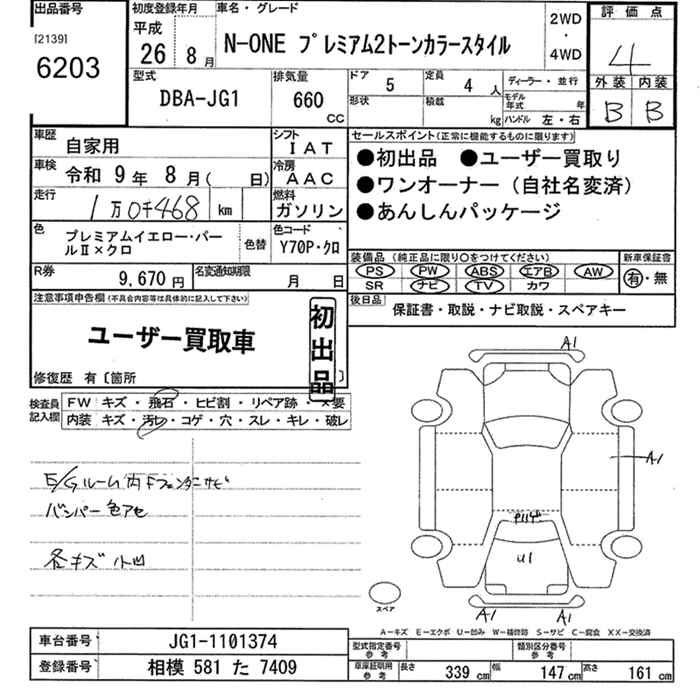 出品番号
[2139]
6203
初度登録年月
平成
26年 8月
車名・グレード
N-ONE プレミアム2トーンカラースタイル
2WD
・
4WD
評価点
4
外装 内装
B B
型式
DBA-JG1
排気量
660
CC
ドア
5
定員
4人
形状
積載
kg
ディーラー・並行
モデル年式 年
ハンドル 左・右
車歴
自家用
シフト
IAT
車検
令和 9年 8月( 日)
冷房
AAC
走行
1万0千468 km
燃料
ガソリン
色
プレミアムイエロー・パー
ルⅡ×クロ
色替
色コード
Y70P・クロ
R券
9,670円
名変通知期限
月 日
セールスポイント(正常に機能するものに限ります)
●初出品 ●ユーザー買取り
●ワンオーナー(自社名変済)
●あんしんパッケージ
装備品 (純正品に限り○をつけてください)
PS PW ABS エアB AW
SR ナビ TV カワ
新車保証書
有・無
後日品
保証書・取説・ナビ取説・スペアキー
注意事項申告欄(不具合内容等は具体的に記入して下さい)
ユーザー買取車
初出品
修復歴 有〔箇所 〕
検査員
記入欄
FW キズ・飛石・ヒビ割・リペア跡・×要
内装 キズ・汚レ・コゲ・穴・スレ・キレ・破レ
E/Gルーム内Fフェンダーサビ
バンパー色アセ
各キズ小凹
A1
A1
U1
A1 A1
スペア
A-キズ E-エクボ U-凹み W-補修跡 S-サビ C-腐食 XX-交換済
車台番号
JG1-1101374
登録番号
相模 581 た 7409
型式指定番号
参考
類別区分番号
参考
車庫証明用
参考
長さ 339 cm 幅 147 cm 高さ 161 cm